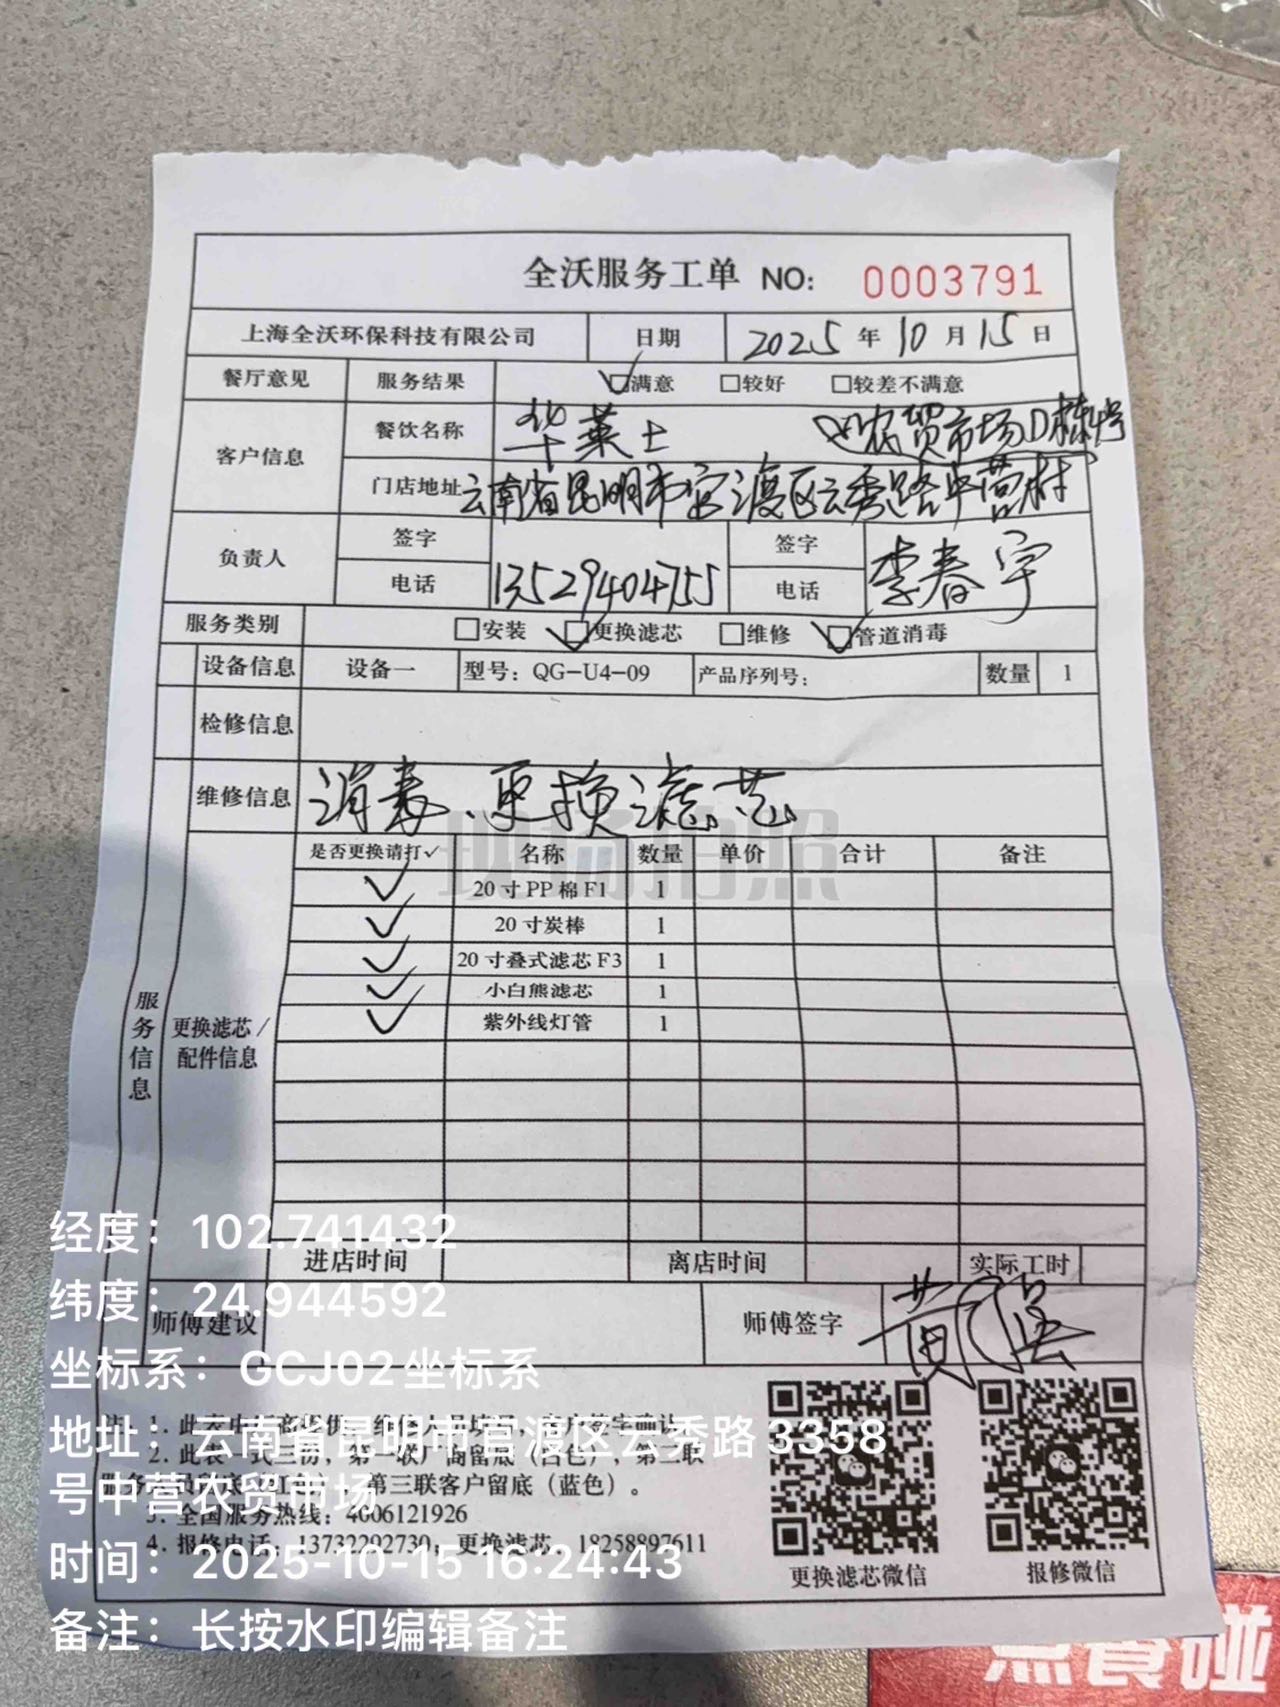 全沃服务工单 NO: 0003791
上海全沃环保科技有限公司 日期 2025年10月15日
餐厅意见 服务结果 ☑满意 □较好 □较差不满意
客户信息 餐饮名称 华莱士 农贸市场D栋
门店地址 云南省昆明市官渡区云秀路中营村
负责人 签字 签字
电话 13529404755 电话 李春宇
服务类别 □安装 ☑更换滤芯 □维修 ☑管道消毒
设备信息 设备一 型号：QG-U4-09 产品序列号： 数量 1
检修信息
维修信息 消毒、更换滤芯
是否更换请打✓ 名称 数量 单价 合计 备注
✓ 20寸PP棉F1 1
✓ 20寸炭棒 1
✓ 20寸叠式滤芯F3 1
✓ 小白熊滤芯 1
✓ 紫外线灯管 1
服务信息
更换滤芯/配件信息
现场拍照
进店时间 离店时间 实际工时
师傅建议 师傅签字 黄
2. 此表一式三份，第一联厂商留底（白色），第二联
第三联客户留底（蓝色）。
3. 全国服务热线：4006121926
4. 报修电话：13732292730，更换滤芯：18258897611
更换滤芯微信 报修微信
经度：102.741432
纬度：24.944592
坐标系：GCJ02坐标系
地址：云南省昆明市官渡区云秀路3358
号中营农贸市场
时间：2025-10-15 16:24:43
备注：长按水印编辑备注
点餐碰